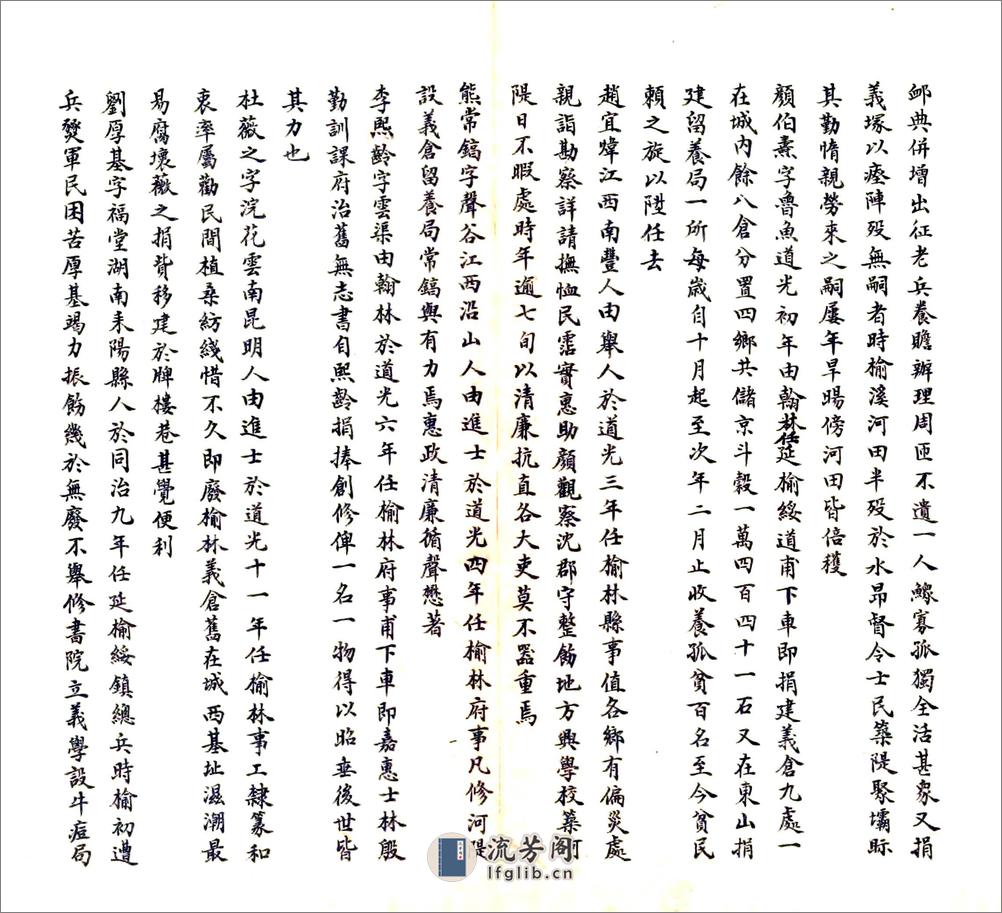 卹典併增出征老兵養贍辦理周匝不遺一人鰥寡孤獨全活甚衆又捐
義塚以瘞陣歿無嗣者時榆溪河田半歿於水昂督令士民築隄聚壩眎
其勤惰親勞來之嗣屢年旱暘傍河田皆倍穫
顏伯燾字魯魚道光初年由翰林任延榆綏道甫下車即捐建義倉九處一
在城內餘八倉分置四鄉共儲京斗穀一萬四百四十一石又在東山捐
建留養局一所每歲自十月起至次年二月止收養孤貧百名至今貧民
賴之旋以陞任去
趙宜㷡江西南豐人由舉人於道光三年任榆林縣事值各鄉有偏災處
親詣勘察詳請撫恤民霑實惠助顏觀察沈郡守整飭地方興學校築河
隄日不暇處時年逾七旬以清廉抗直各大吏莫不器重焉
熊常錞字聲谷江西沿山人由進士於道光四年任榆林府事凡修河隄
設義倉留養局常錞與有力焉惠政清廉循聲懋著
李熙齡字雲渠由翰林於道光六年任榆林府事甫下車即嘉惠士林殷
勤訓課府治舊無志書自熙齡捐捧創修俾一名一物得以昭垂後世皆
其力也
杜薇之字浣花雲南昆明人由進士於道光十一年任榆林事工隸篆和
衷率屬勸民間植桑紡綫惜不久即廢榆林義倉舊在城西基址濕潮最
易腐壞薇之捐貲移建於牌樓巷甚覺便利
劉厚基字福堂湖南耒陽縣人於同治九年任延榆綏鎮總兵時榆初遭
兵燹軍民困苦厚基竭力振飭幾於無廢不舉修書院立義學設牛痘局
流芳阁
lfglib.cn